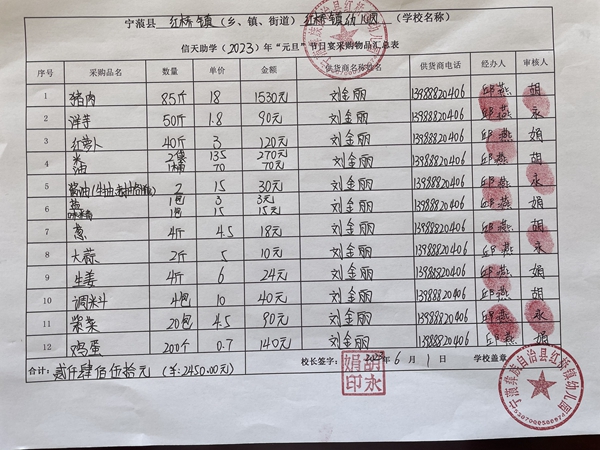 宁蒗县 红桥镇 (乡、镇、街道) 红桥镇幼儿园 (学校名称)
信天助学(2023)年“元旦”节日宴采购物品汇总表
序号 采购品名 数量 单价 金额 供货商名称姓名 供货商电话 经办人 审核人
1 猪肉 85斤 18 1530元 刘金丽 13988820406 邱燕 胡
2 洋芋 50斤 1.8 90元 刘金丽 13988820406 邱燕 永
3 红萝卜 40斤 3 120元 刘金丽 13988820406 邱燕 娟
4 米 2袋 135 270元 刘金丽 13988820406 邱燕 胡
油 1桶 70 70元
5 酱油 2 15 30元 刘金丽 13988820406 邱燕 永
6 盐 1包 3 3元 刘金丽 13988820406 邱燕 娟
味精 1包 15 15元
7 葱 4斤 4.5 18元 刘金丽 13988820406 邱燕 胡
8 大蒜 2斤 5 10元 刘金丽 13988820406 邱燕 永
9 生姜 4斤 6 24元 刘金丽 13988820406 邱燕 娟
10 调料 4包 10 40元 刘金丽 13988820406 邱燕 胡
11 紫菜 20包 4.5 90元 刘金丽 13988820406 邱燕 永
12 鸡蛋 200个 0.7 140元 刘金丽 13988820406 邱燕 娟
合计: 贰仟肆佰伍拾元 (¥:2450.00元) 校长签字: 2023年6月1日 学校盖章
胡永娟印
宁蒗彝族自治县红桥镇幼儿园